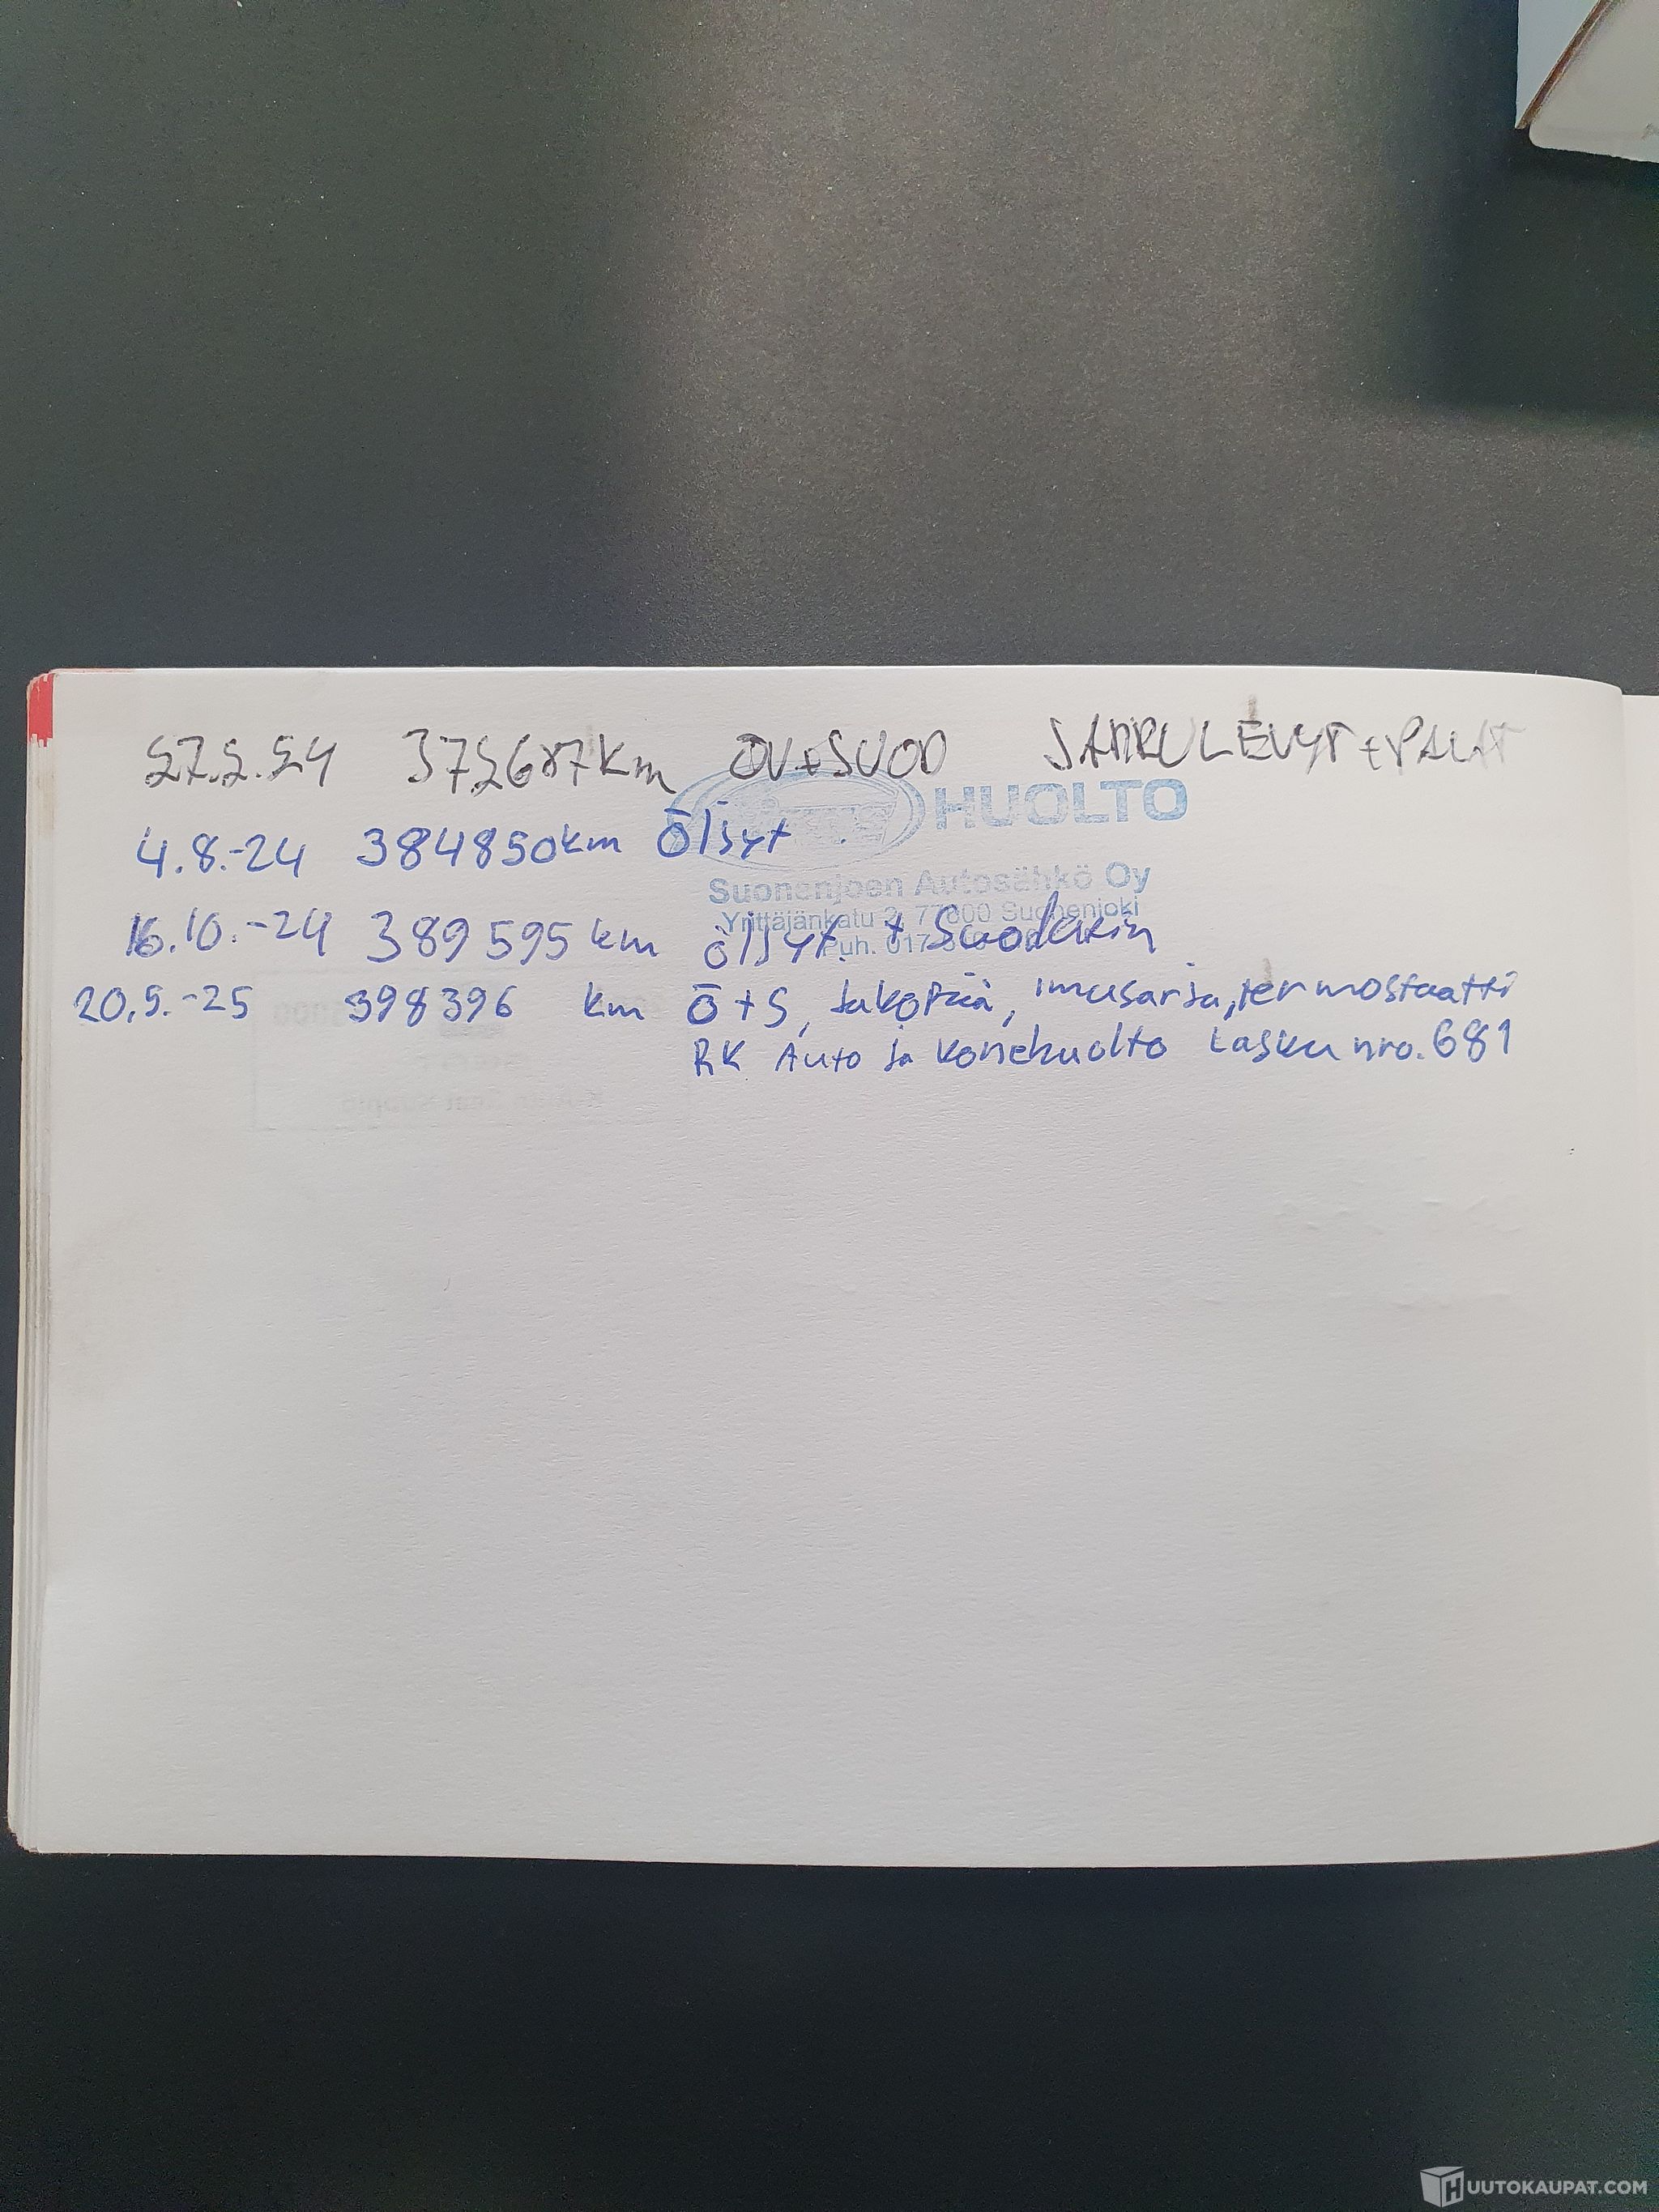 27.2.24 372687km ÖV+SUOD JARRULEVYT+PALAT
HUOLTO
4.8.-24 384850km Öljyt
Suonenjoen Autosähkö Oy
Yrittäjänkatu 2, 77600 Suonenjoki
Puh. 017
16.10.-24 389595 km öljyt + Suodatin
20.5.-25 398396 km Ö+S, Jakopää, imusarja, termostaatti
RK Auto ja konehuolto Lasku nro. 681
HUUTOKAUPAT.COM